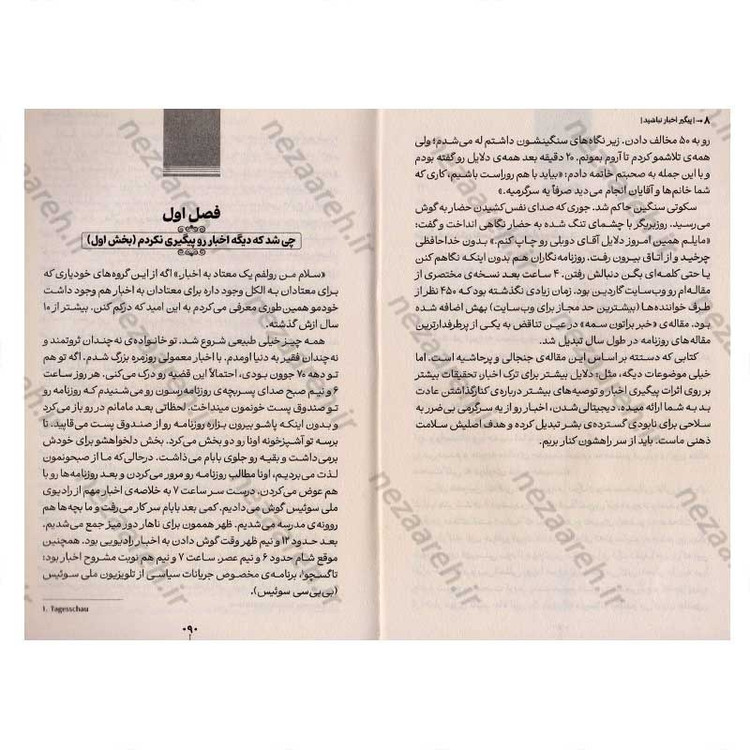 ۸ ← | پیگیر اخبار نباشید |
رو به ۵۰ مخالف دادن. زیر نگاه‌های سنگینشون داشتم له می‌شدم؛ ولی
همه‌ی تلاشمو کردم تا آروم بمونم. ۲۰ دقیقه بعد همه‌ی دلایل رو گفته بودم
و با این جمله به صحبتم خاتمه دادم: «بیاید با هم روراست باشیم، کاری که
شما خانم‌ها و آقایان انجام می‌دید صرفاً یه سرگرمیه.»
سکوتی سنگین حاکم شد. جوری که صدای نفس کشیدن حضار به گوش
می‌رسید. روزبریگر با چشمای تنگ شده به حضار نگاهی انداخت و گفت:
«مایلم همین امروز دلایل آقای دوبلی رو چاپ کنم.» بدون خداحافظی
چرخید و از اتاق بیرون رفت. روزنامه‌نگاران هم بدون اینکه نگاهم کنن
یا حتی کلمه‌ای بگن دنبالش رفتن. ۴ ساعت بعد نسخه‌ی مختصری از
مقاله‌ام رو وب‌سایت گاردین بود. زمان زیادی نگذشته بود که ۴۵۰ نظر از
طرف خواننده‌ها (بیشترین حد مجاز برای وب‌سایت) بهش اضافه شده
بود. مقاله‌ی «خبر براتون سمه» در عین تناقض به یکی از پرطرفدارترین
مقاله‌های روزنامه در طول سال تبدیل شد.
کتابی که دستته بر اساس این مقاله‌ی جنجالی و پرحاشیه است. اما
خیلی موضوعات دیگه، مثل: دلایل بیشتر برای ترک اخبار، تحقیقات بیشتر
بر روی اثرات پیگیری اخبار و توصیه‌های بیشتر درباره‌ی کنارگذاشتن عادت
بد به شما ارائه میده. دیجیتالی‌شدن، اخبار رو از یه سرگرمی بی‌ضرر به
سلاحی برای نابودی گسترده‌ی بشر تبدیل کرده و هدف اصلیش سلامت
ذهنی ماست. باید از سر راهشون کنار بریم.
فصل اول
چی شد که دیگه اخبار رو پیگیری نکردم (بخش اول)
«سلام من رولفم یک معتاد به اخبار» اگه از این گروه‌های خودیاری که
برای معتادان به الکل وجود داره برای معتادان به اخبار هم وجود داشت
خودمو همین طوری معرفی می‌کردم به این امید که درکم کنن. بیشتر از ۱۰
سال ازش گذشته.
همه چیز خیلی طبیعی شروع شد. تو خانواده‌ی نه‌چندان ثروتمند و
نه‌چندان فقیر به دنیا اومدم. با اخبار معمولی روزمره بزرگ شدم. اگه تو هم
تو دهه ۷۰ جوون بودی، احتمالاً این قضیه رو درک می‌کنی. هر روز ساعت
۶ و نیم صبح صدای پسربچه‌ی روزنامه‌رسون رو می‌شنیدم که روزنامه رو
تو صندوق پست خونمون مینداخت. لحظاتی بعد مامانم در رو باز می‌کرد
و بدون اینکه پاشو بیرون بزاره روزنامه رو از صندوق پست می‌قاپید. تا
برسه تو آشپزخونه اونا رو دو بخش می‌کرد. بخش دلخواهشو برای خودش
برمی‌داشت و بقیه رو جلوی بابام می‌ذاشت. درحالی‌که ما از صبحونمون
لذت می‌بردیم، اونا مطالب روزنامه رو مرور می‌کردن و بعد روزنامه‌ها رو با
هم عوض می‌کردن. درست سر ساعت ۷ به خلاصه‌ی اخبار مهم از رادیوی
ملی سوئیس گوش می‌دادیم. کمی بعد بابام سر کار می‌رفت و ما بچه‌ها هم
روونه‌ی مدرسه می‌شدیم. ظهر هممون برای ناهار دور میز جمع می‌شدیم.
بعد حدود ۱۲ و نیم ظهر وقت گوش دادن به اخبار رادیویی بود. همچنین
موقع شام حدود ۶ و نیم عصر. ساعت ۷ و نیم هم نوبت مشروح اخبار بود:
تاگسچو۱، برنامه‌ی مخصوص جریانات سیاسی از تلویزیون ملی سوئیس
(بی‌بی‌سی سوئیس).
1. Tagesschau
۰۹۰
nezaareh.ir
nezaareh.ir
nezaareh.ir
nezaareh.ir
nezaareh.ir
nezaareh.ir